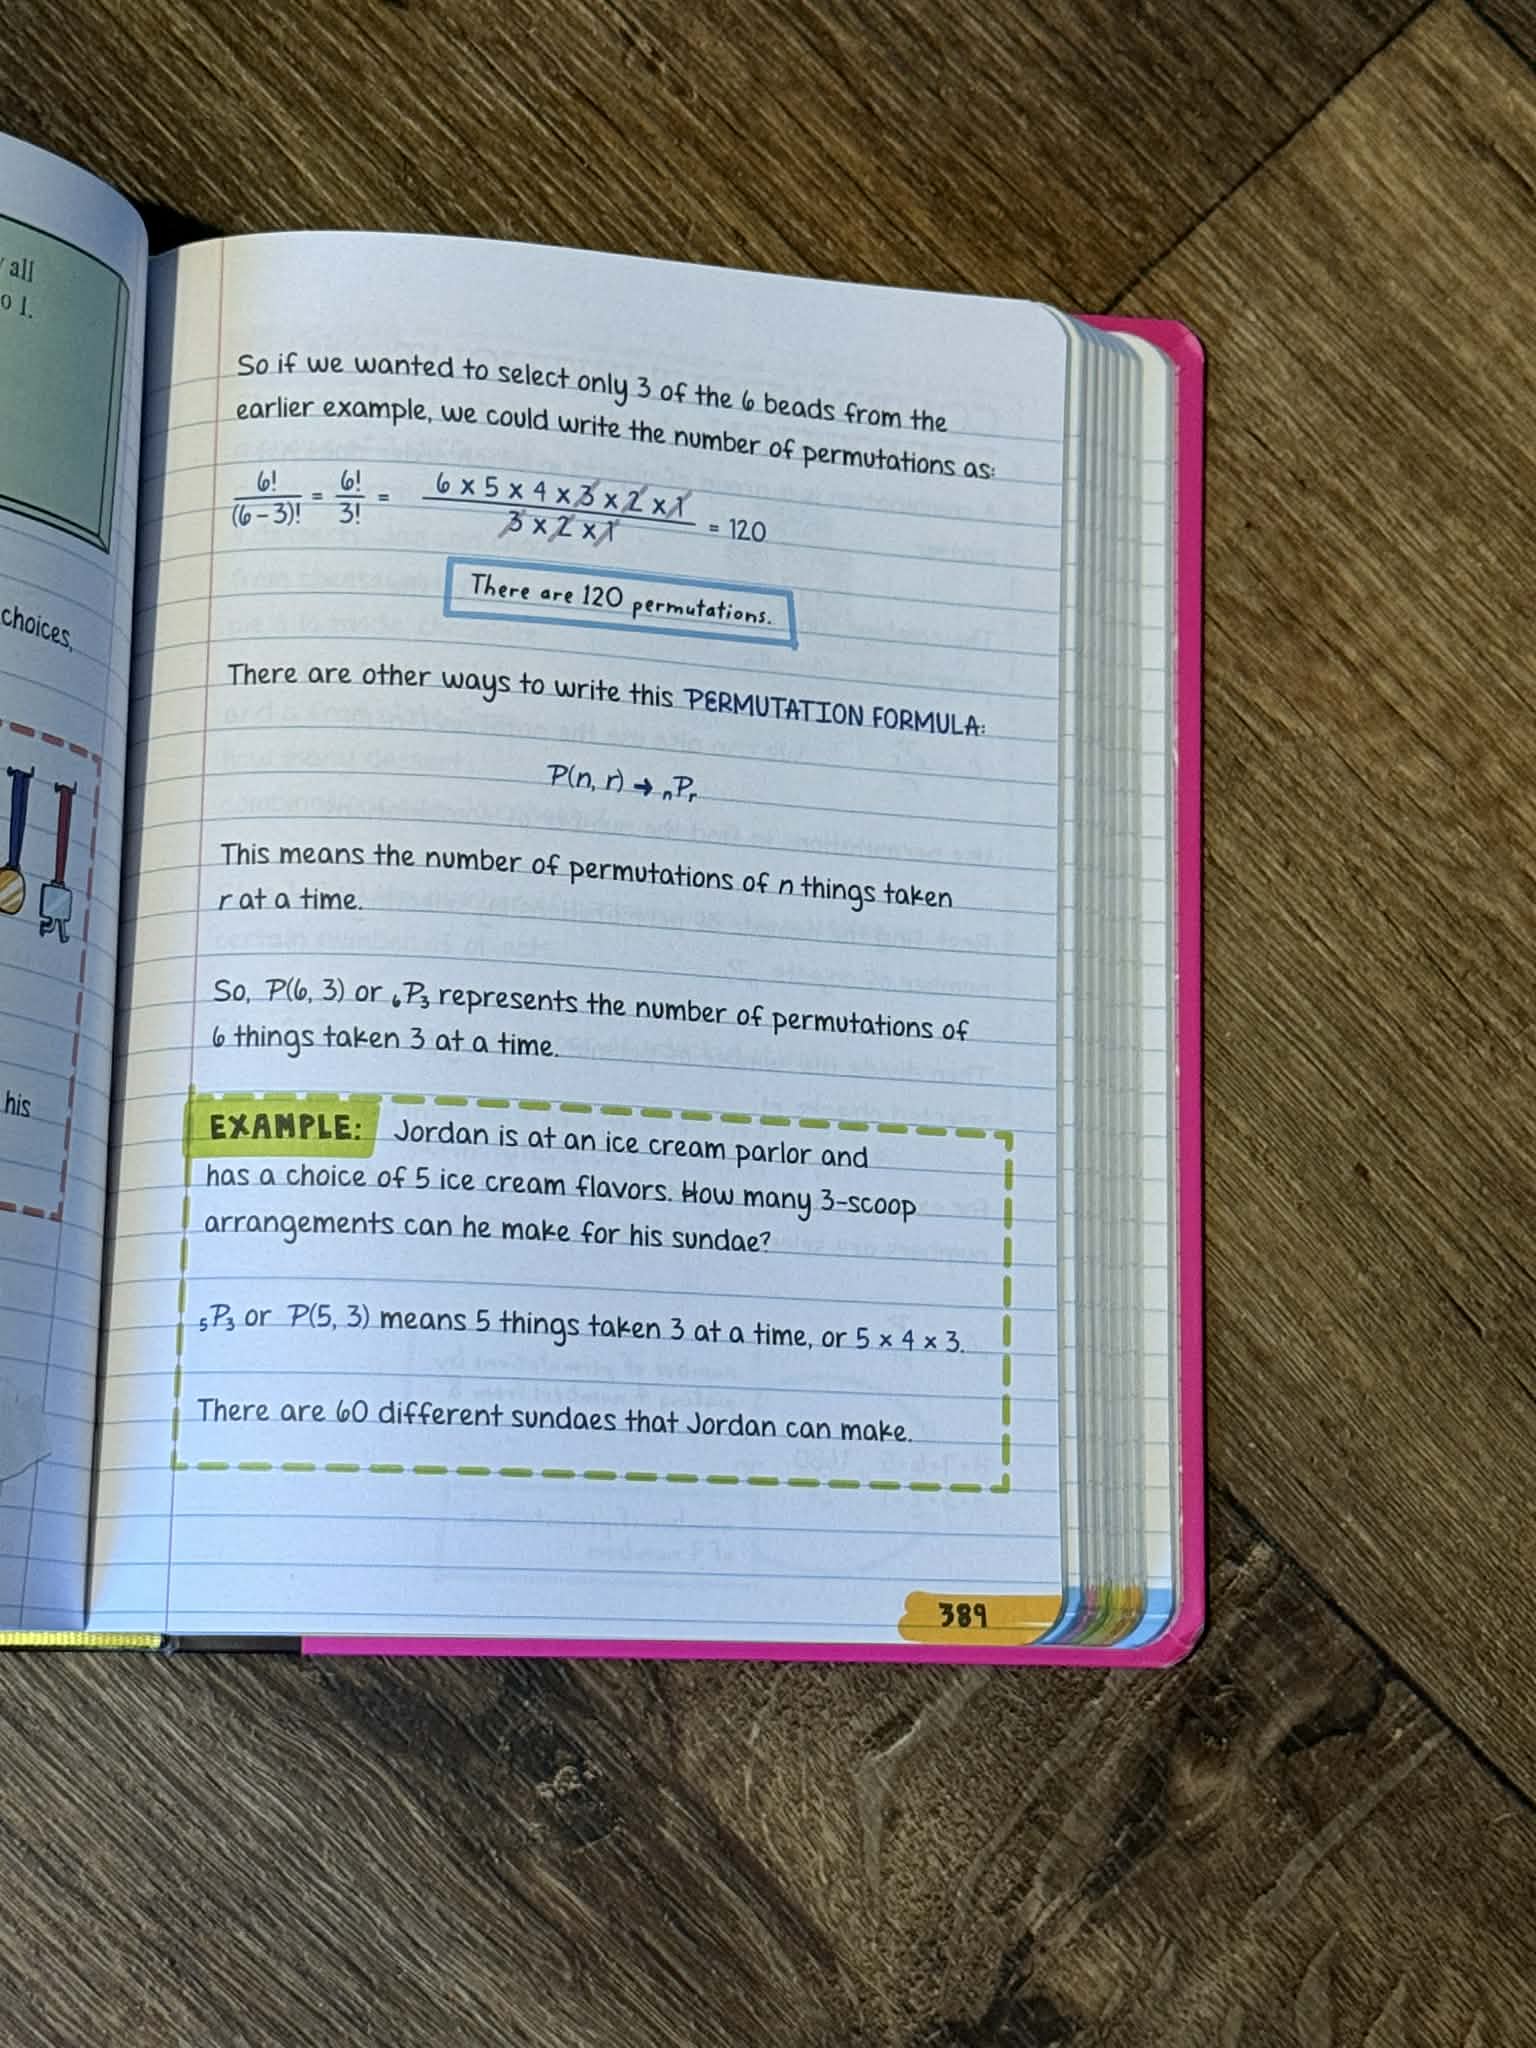 all
o 1.
choices,
his
So if we wanted to select only 3 of the 6 beads from the
earlier example, we could write the number of permutations as:
6!/(6 – 3)! = 6!/3! = 6 x 5 x 4 x 3 x 2 x 1/3 x 2 x 1 = 120
There are 120 permutations.
There are other ways to write this PERMUTATION FORMULA:
P(n, r) → ₙPᵣ
This means the number of permutations of n things taken
r at a time.
So, P(6, 3) or ₆P₃ represents the number of permutations of
6 things taken 3 at a time.
EXAMPLE: Jordan is at an ice cream parlor and
has a choice of 5 ice cream flavors. How many 3-scoop
arrangements can he make for his sundae?
₅P₃ or P(5, 3) means 5 things taken 3 at a time, or 5 x 4 x 3.
There are 60 different sundaes that Jordan can make.
389